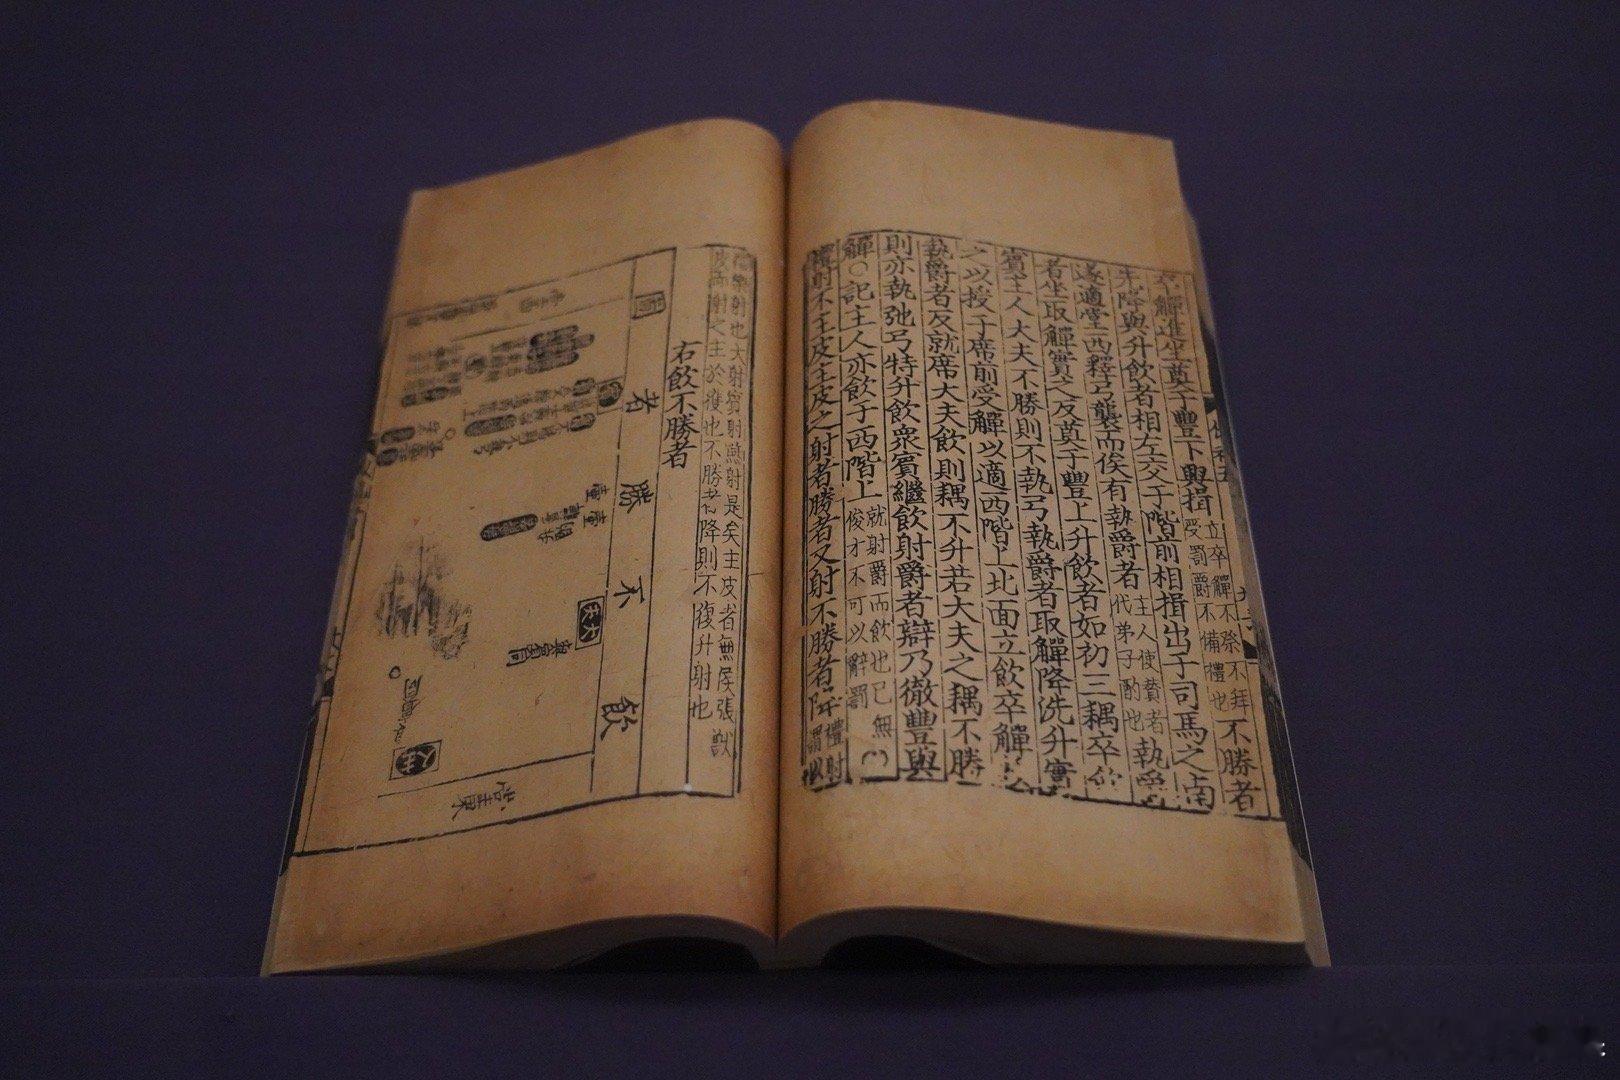 卒觶進坐奠于豐下興揖立卒觶不祭不拜受罰爵不備禮也不勝者
先降與升飲者相左交于階前相揖出于司馬之南
遂適堂西釋弓襲而俟有執爵者主人使贊者代弟子酌也執爵
者坐取觶實之反奠于豐上升飲者如初三耦卒飲
賓主人大夫不勝則不執弓執爵者取觶降洗升實
之以授于席前受觶以適西階上北面立飲卒觶
執爵者反就席大夫飲則耦不升若大夫之耦不勝
則亦執弛弓特升飲衆賓繼飲射爵者辯乃徹豐與
觶○記主人亦飲于西階上就射爵而飲也已無俊才不可以辭罰
禮射不主皮主皮之射者勝者又射不勝者降禮射謂以
禮樂射也大射賓射燕射是矣主皮者無侯張獸
皮而射之主於獲也不勝者降則不復升射也
右飲不勝者
飲不勝者圖
賓
大夫
主人